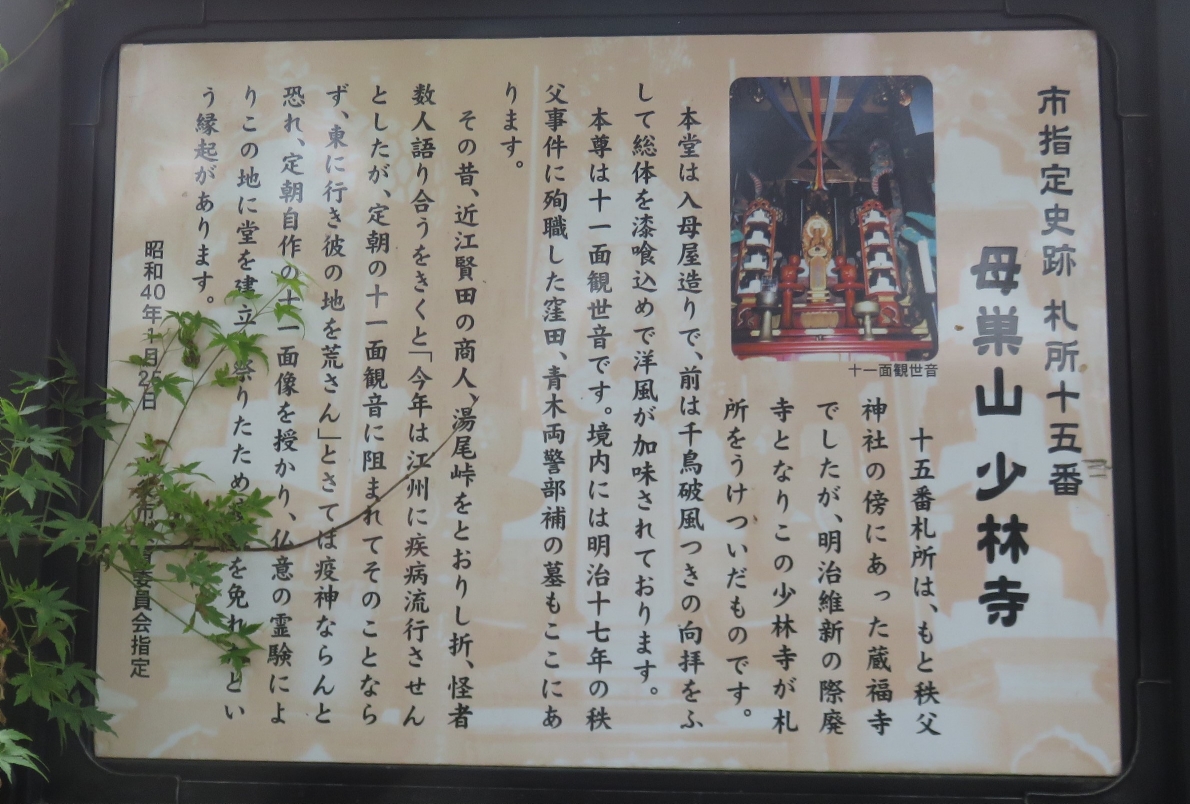 市指定史跡 札所十五番
母巣山 少林寺
十五番札所は、もと秩父
神社の傍にあった蔵福寺
でしたが、明治維新の際廃
寺となりこの少林寺が札
所をうけついだものです。
十一面観世音
本堂は入母屋造りで、前は千鳥破風つきの向拝をふ
して総体を漆喰込めで洋風が加味されております。
本尊は十一面観世音です。境内には明治十七年の秩
父事件に殉職した窪田、青木両警部補の墓もここにあ
ります。
その昔、近江賢田の商人、湯尾峠をとおりし折、怪者
数人語り合うをきくと「今年は江州に疾病流行させん
としたが、定朝の十一面観音に阻まれてそのことなら
ず、東に行き彼の地を荒さん」とさては疫神ならんと
恐れ、定朝自作の十一面像を授かり、仏意の霊験によ
りこの地に堂を建立 祭りたため を免れ とい
う縁起があります。
昭和40年1月25日
市 委員会指定